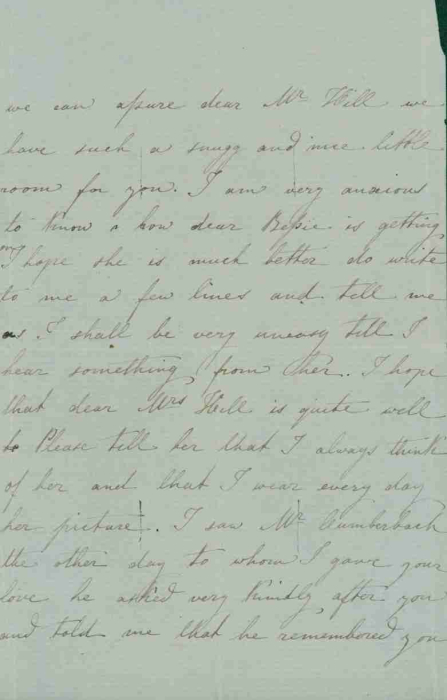 we can assure dear Mr Hill we
have such a snugg and nice little
room for you. I am very anxious
to know a how dear Bessie is getting
on I hope she is much better do write
to me a few lines and tell me
as I shall be very uneasy till I
hear something from her. I hope
that dear Mrs Hill is quite well
Please tell her that I always think
of her and that I wear every day
her picture. I saw Mr Cumberbach
the other day to whom I gave your
love he asked very kindly after you
and told me that he remembered you